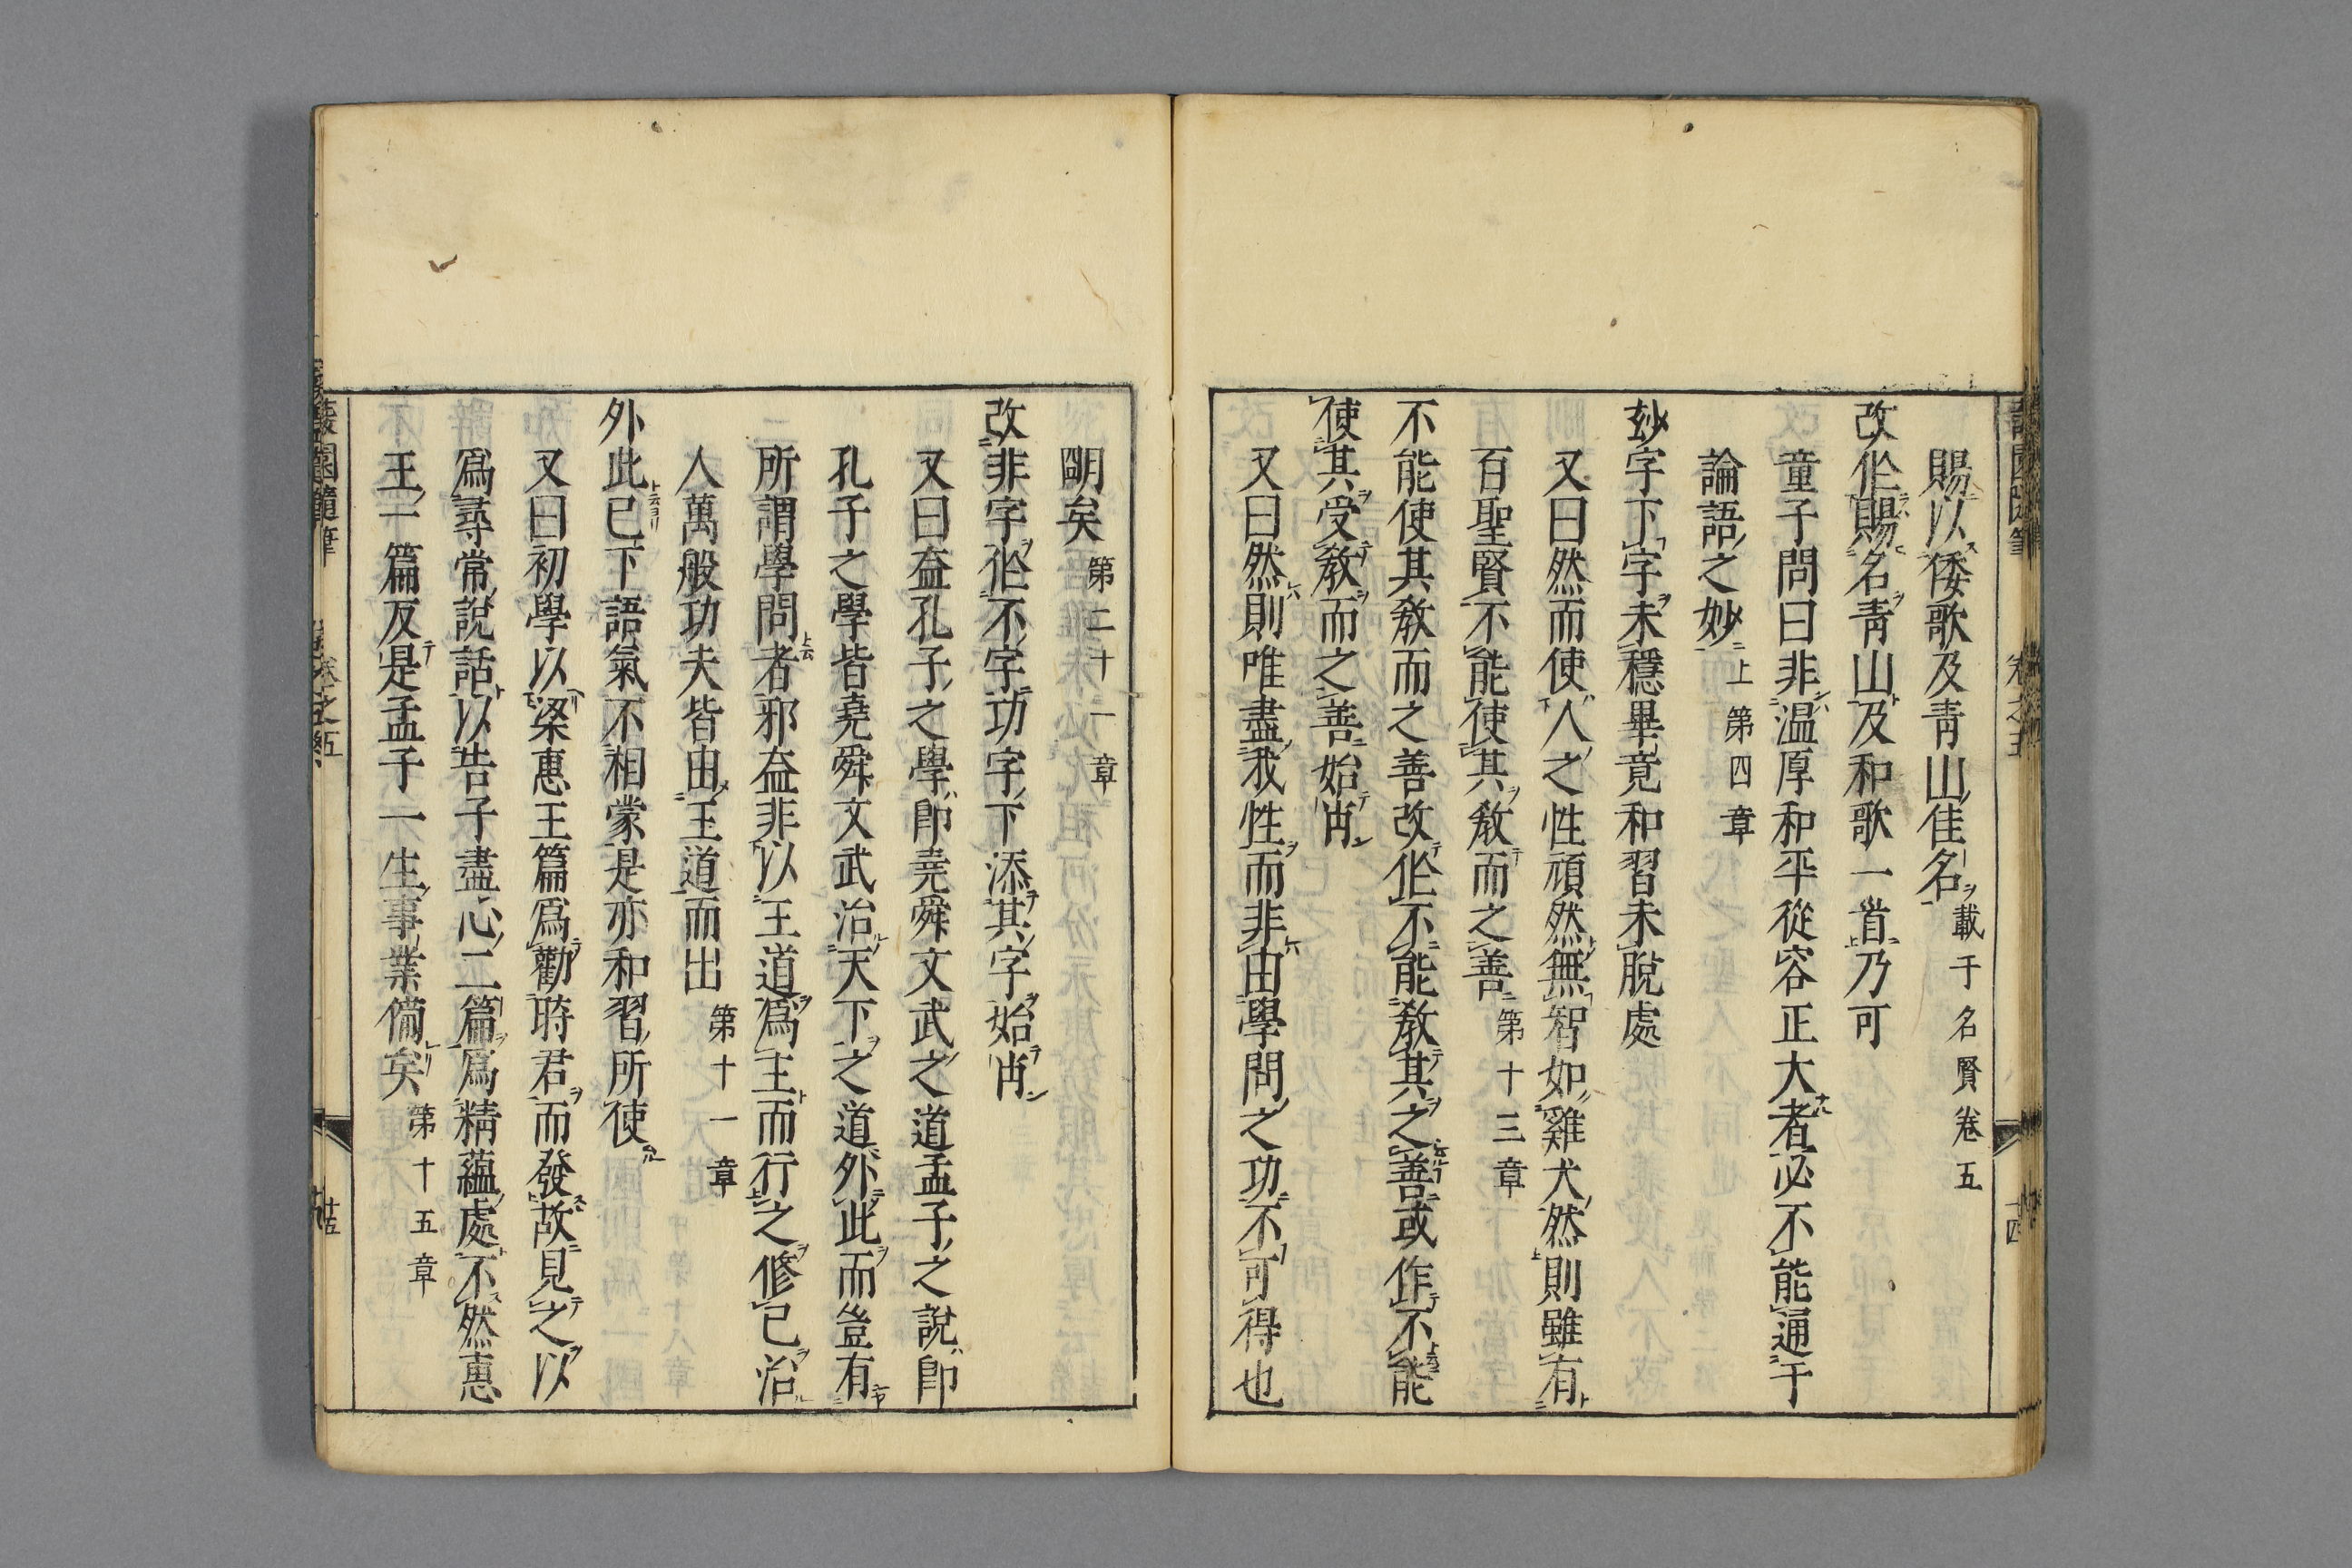 賜以倭歌及青山佳名載于名賢卷五
改作賜名青山及和歌一首乃可
童子問曰非温厚和平從容正大者必不能通于
論語之妙上第四章
玅字下字未穩畢竟和習未脫處
又曰然而使人之性頑然無智如雞犬然則雖有
百聖賢不能使其教而之善第十三章
不能使其教而之善改作不能教其之善或作不能
使其受教而之善始肯
又曰然則唯盡我性而非由學問之功不可得也
明矣第二十一章
改非字作不字功字下添其字始肯
又曰益孔子之學卽堯舜文武之道孟子之說卽
孔子之學皆堯舜文武治天下之道外此而豈有
所謂學問者邪益非以王道爲主而行之修己治
人萬般功夫皆由王道而出第十一章
外此已下語氣不相蒙是亦和習所使
又曰初學以梁惠王篇爲勸時君而發故見之以
爲尋常說話以告子盡心二篇爲精蘊處不然惠
王一篇反是孟子一生事業備矣第十五章